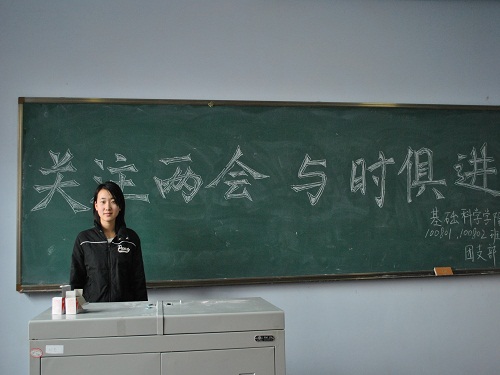 关注两会 与时俱进
基础科学学院
100801、100802班
团支部